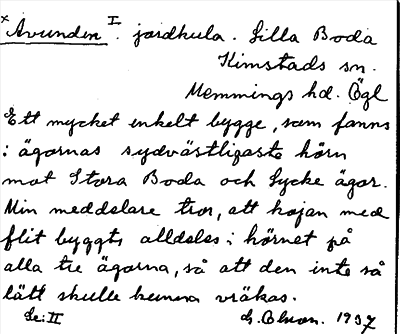 x Avunden I. jordkula. Lilla Boda
Kimstads sn.
Memmings hd. Ögl
Ett mycket enkelt bygge, som fanns
i ägornas sydvästligaste hörn
mot Stora Boda och Lycke ägor.
Min meddelare tror, att kojan med
flit byggts alldeles i hörnet på
alla tre ägorna, så att den inte så
lätt skulle kunna vräkas.
Se: II
1937